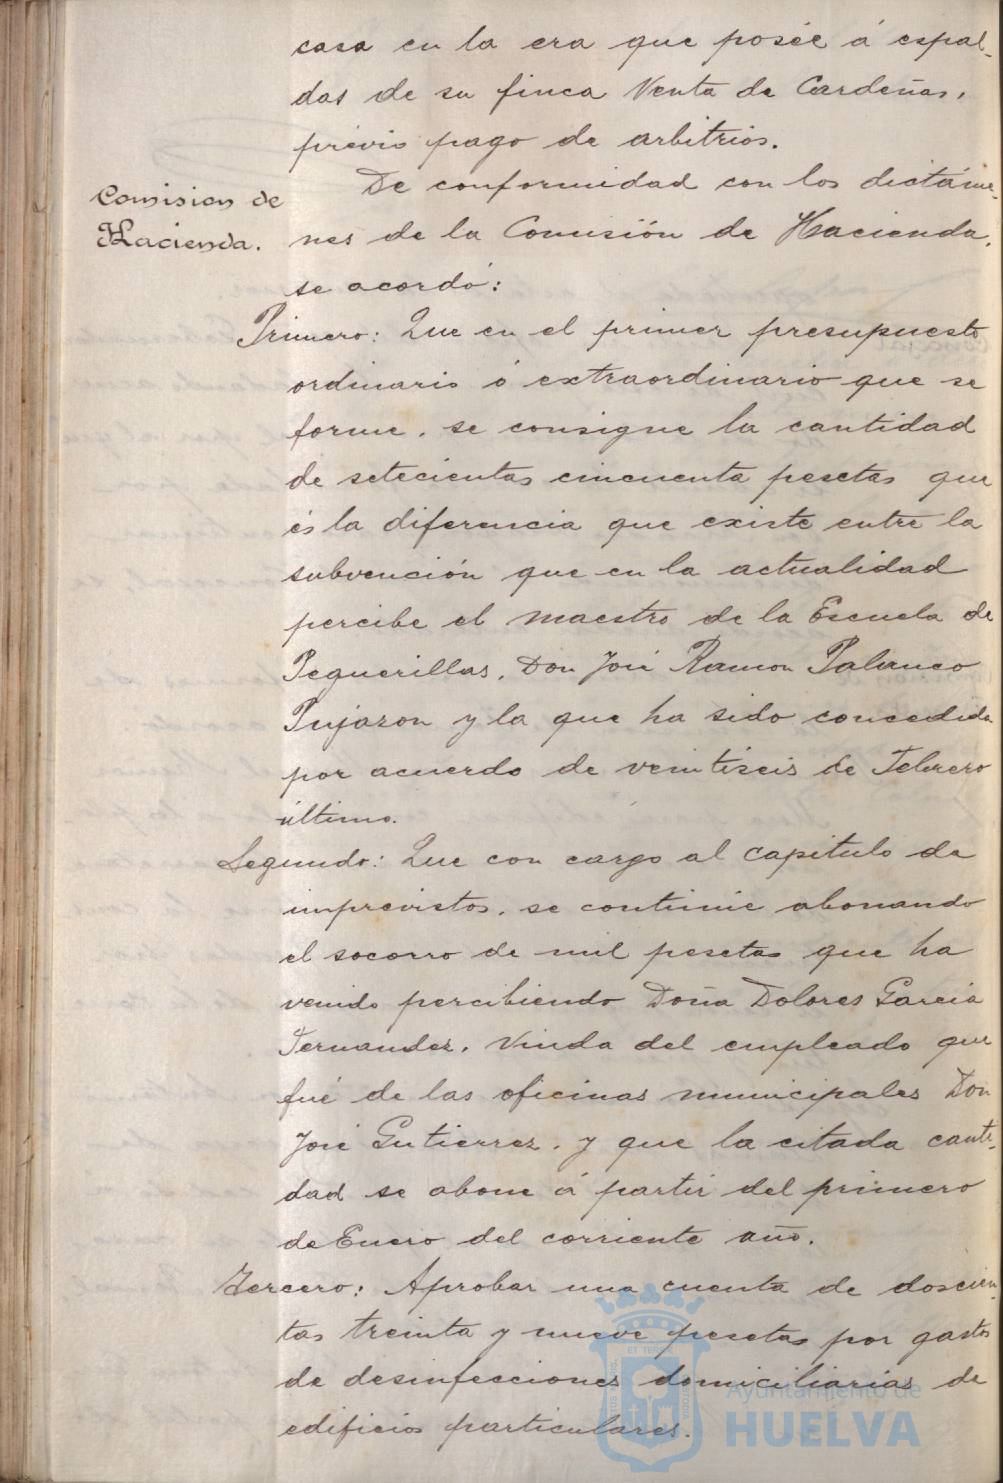 casa en la era que posée á espal-
das de su finca Venta de Cardeñas,
prévio pago de arbitrios.
De conformidad con los dictáme-
Comision de
Hacienda.
nes de la Comisión de Hacienda,
se acordó:
Primero: Que en el primer presupuesto
ordinario ó extraordinario que se
forme, se consigne la cantidad
de setecientas cincuenta pesetas que
és la diferencia que existe entre la
subvención que en la actualidad
percibe el maestro de la Escuela de
Peguerillas, Don José Ramon Palanco
Pujazon y la que ha sido concedida
por acuerdo de veintiseis de Febrero
último.
Segundo: Que con cargo al capitulo de
imprevistos, se continúe abonando
el socorro de mil pesetas que ha
venido percibiendo Doña Dolores Garcia
Fernandez, Viuda del empleado que
fué de las oficinas municipales Don
José Gutierrez, y que la citada canti-
dad se abone á partir del primero
de Enero del corriente año.
Tercero: Aprobar una cuenta de doscien-
tas treinta y nueve pesetas por gastos
de desinfecciones domiciliarias de
edificios particulares.
Ayuntamiento de
HUELVA